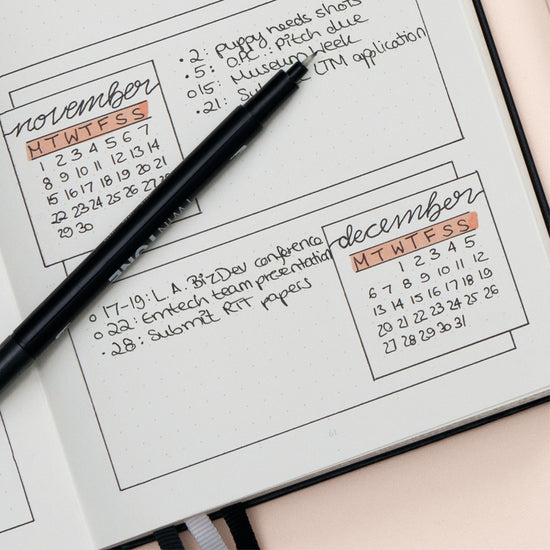 • 2: puppy needs shots
• 5: OPC: pitch due
o 15: Museum Week
• 21: UTM application
november
M T W T F S S
1 2 3 4 5 6 7
8 9 10 11 12 13 14
15 16 17 18 19 20 21
22 23 24 25 26 27 28
29 30
december
M T W T F S S
1 2 3 4 5
6 7 8 9 10 11 12
13 14 15 16 17 18 19
20 21 22 23 24 25 26
27 28 29 30 31
o 17-19: L.A. BizDev conference
o 22: Emtech team presentation
• 28: Submit RTT papers
61
TWIN TONE